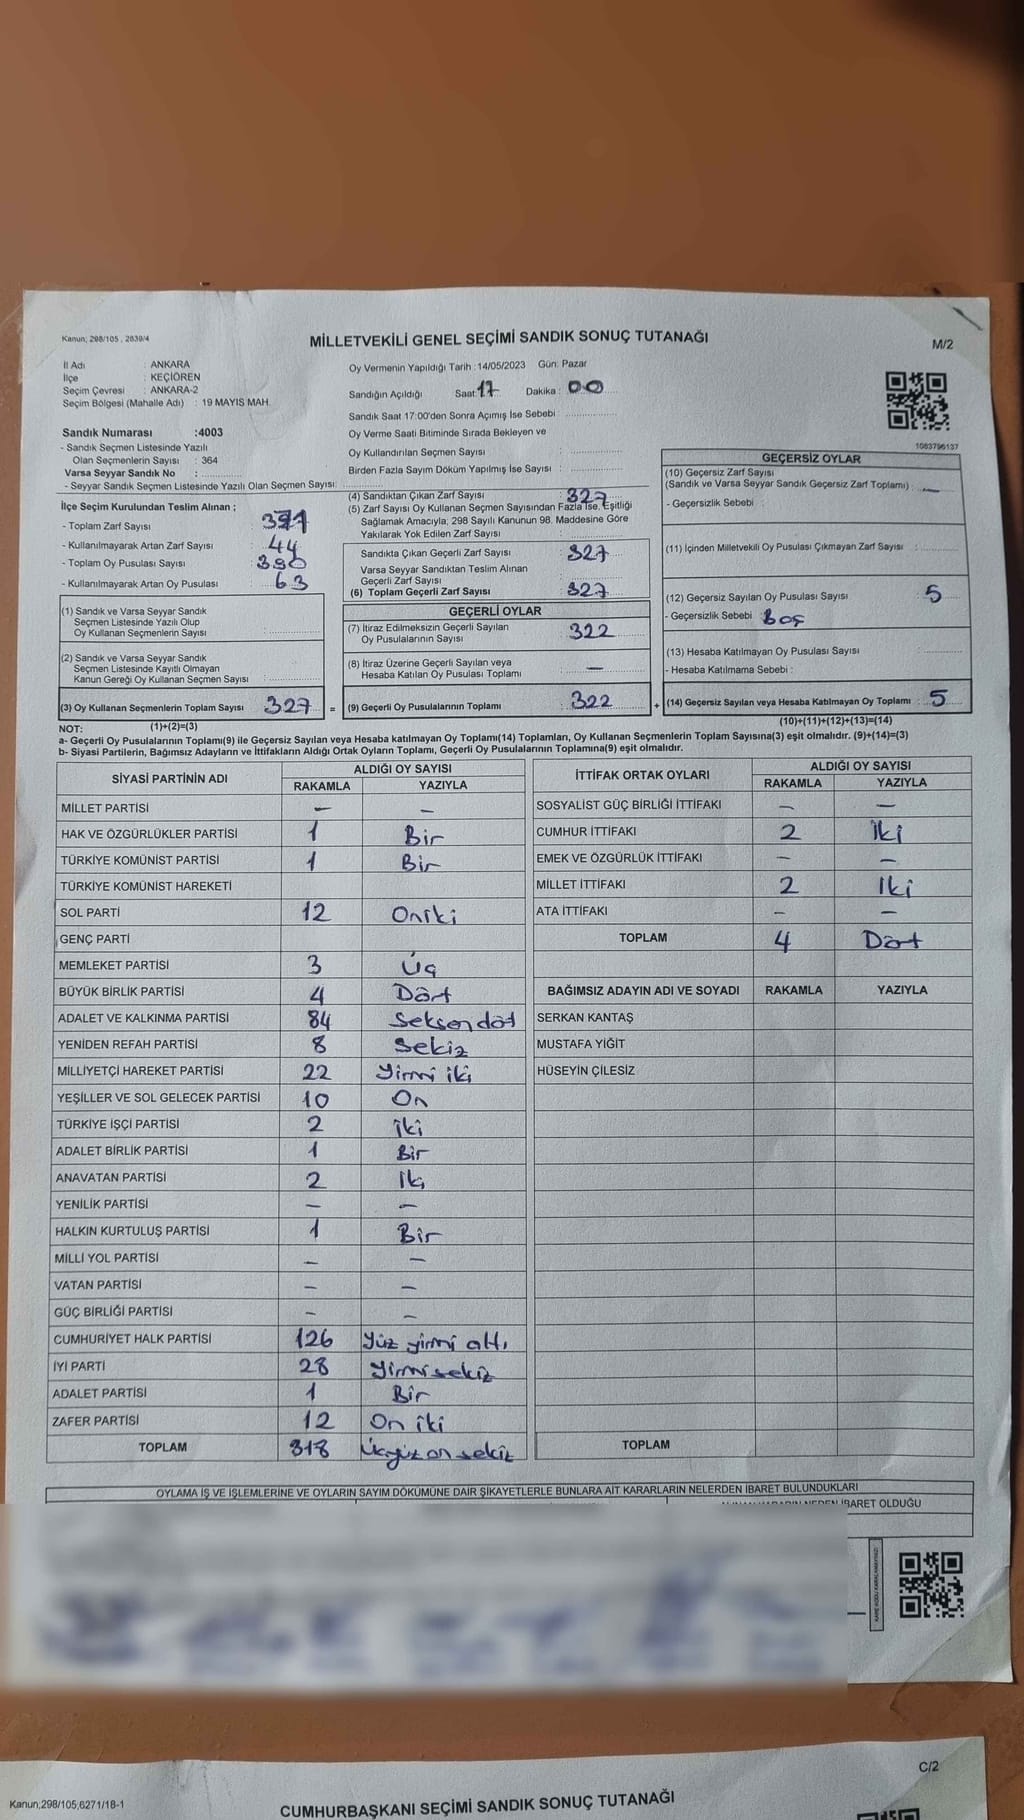 Kanun; 298/105 , 2839/4
MİLLETVEKİLİ GENEL SEÇİMİ SANDIK SONUÇ TUTANAĞI
M/2
İl Adı : ANKARA
İlçe : KEÇİÖREN
Seçim Çevresi : ANKARA-2
Seçim Bölgesi (Mahalle Adı) : 19 MAYIS MAH.
Oy Vermenin Yapıldığı Tarih : 14/05/2023 Gün: Pazar
Sandığın Açıldığı Saat: 17 Dakika : 00
Sandık Saat 17:00'den Sonra Açımış İse Sebebi :
Oy Verme Saati Bitiminde Sırada Bekleyen ve
Oy Kullandırılan Seçmen Sayısı :
Birden Fazla Sayım Döküm Yapılmış İse Sayısı :
Sandık Numarası :4003
- Sandık Seçmen Listesinde Yazılı
Olan Seçmenlerin Sayısı : 364
Varsa Seyyar Sandık No :
- Seyyar Sandık Seçmen Listesinde Yazılı Olan Seçmen Sayısı:
1083796137
İlçe Seçim Kurulundan Teslim Alınan ;
- Toplam Zarf Sayısı : 371
- Kullanılmayarak Artan Zarf Sayısı : 44
- Toplam Oy Pusulası Sayısı : 390
- Kullanılmayarak Artan Oy Pusulası : 63
(1) Sandık ve Varsa Seyyar Sandık
Seçmen Listesinde Yazılı Olup
Oy Kullanan Seçmenlerin Sayısı :
(2) Sandık ve Varsa Seyyar Sandık
Seçmen Listesinde Kayıtlı Olmayan
Kanun Gereği Oy Kullanan Seçmen Sayısı :
(3) Oy Kullanan Seçmenlerin Toplam Sayısı : 327 =
(1)+(2)=(3)
(4) Sandıktan Çıkan Zarf Sayısı : 327
(5) Zarf Sayısı Oy Kullanan Seçmen Sayısından Fazla İse, Eşitliği
Sağlamak Amacıyla; 298 Sayılı Kanunun 98. Maddesine Göre
Yakılarak Yok Edilen Zarf Sayısı :
Sandıkta Çıkan Geçerli Zarf Sayısı : 327
Varsa Seyyar Sandıktan Teslim Alınan
Geçerli Zarf Sayısı :
(6) Toplam Geçerli Zarf Sayısı : 327
GEÇERLİ OYLAR
(7) İtiraz Edilmeksizin Geçerli Sayılan
Oy Pusulalarının Sayısı : 322
(8) İtiraz Üzerine Geçerli Sayılan veya
Hesaba Katılan Oy Pusulası Toplamı : —
(9) Geçerli Oy Pusulalarının Toplamı : 322 +
GEÇERSİZ OYLAR
(10) Geçersiz Zarf Sayısı
(Sandık ve Varsa Seyyar Sandık Geçersiz Zarf Toplamı) : —
- Geçersizlik Sebebi :
(11) İçinden Milletvekili Oy Pusulası Çıkmayan Zarf Sayısı :
(12) Geçersiz Sayılan Oy Pusulası Sayısı : 5
- Geçersizlik Sebebi : Boş
(13) Hesaba Katılmayan Oy Pusulası Sayısı :
- Hesaba Katılmama Sebebi :
(14) Geçersiz Sayılan veya Hesaba Katılmayan Oy Toplamı : 5
(10)+(11)+(12)+(13)=(14)
NOT:
a- Geçerli Oy Pusulalarının Toplamı(9) ile Geçersiz Sayılan veya Hesaba katılmayan Oy Toplamı(14) Toplamları, Oy Kullanan Seçmenlerin Toplam Sayısına(3) eşit olmalıdır. (9)+(14)=(3)
b- Siyasi Partilerin, Bağımsız Adayların ve İttifakların Aldığı Ortak Oyların Toplamı, Geçerli Oy Pusulalarının Toplamına(9) eşit olmalıdır.
SİYASİ PARTİNİN ADI ALDIĞI OY SAYISI
RAKAMLA YAZIYLA
MİLLET PARTİSİ — —
HAK VE ÖZGÜRLÜKLER PARTİSİ 1 Bir
TÜRKİYE KOMÜNİST PARTİSİ 1 Bir
TÜRKİYE KOMÜNİST HAREKETİ
SOL PARTİ 12 Oniki
GENÇ PARTİ
MEMLEKET PARTİSİ 3 Üç
BÜYÜK BİRLİK PARTİSİ 4 Dört
ADALET VE KALKINMA PARTİSİ 84 Seksen döt
YENİDEN REFAH PARTİSİ 8 Sekiz
MİLLİYETÇİ HAREKET PARTİSİ 22 Yirmi iki
YEŞİLLER VE SOL GELECEK PARTİSİ 10 On
TÜRKİYE İŞÇİ PARTİSİ 2 İki
ADALET BİRLİK PARTİSİ 1 Bir
ANAVATAN PARTİSİ 2 İki
YENİLİK PARTİSİ — —
HALKIN KURTULUŞ PARTİSİ 1 Bir
MİLLİ YOL PARTİSİ — —
VATAN PARTİSİ — —
GÜÇ BİRLİĞİ PARTİSİ — —
CUMHURİYET HALK PARTİSİ 126 Yüz yirmi altı
İYİ PARTİ 28 Yirmi sekiz
ADALET PARTİSİ 1 Bir
ZAFER PARTİSİ 12 On iki
TOPLAM 318 Üçyüz on sekiz
İTTİFAK ORTAK OYLARI ALDIĞI OY SAYISI
RAKAMLA YAZIYLA
SOSYALİST GÜÇ BİRLİĞİ İTTİFAKI — —
CUMHUR İTTİFAKI 2 İki
EMEK VE ÖZGÜRLÜK İTTİFAKI — —
MİLLET İTTİFAKI 2 İki
ATA İTTİFAKI — —
TOPLAM 4 Dört
BAĞIMSIZ ADAYIN ADI VE SOYADI RAKAMLA YAZIYLA
SERKAN KANTAŞ
MUSTAFA YİĞİT
HÜSEYİN ÇİLESİZ
TOPLAM
OYLAMA İŞ VE İŞLEMLERİNE VE OYLARIN SAYIM DÖKÜMÜNE DAİR ŞİKAYETLERLE BUNLARA AİT KARARLARIN NELERDEN İBARET BULUNDUKLARI
İBARET OLDUĞU
C/2
Kanun;298/105,6271/18-1
CUMHURBAŞKANI SEÇİMİ SANDIK SONUÇ TUTANAĞI